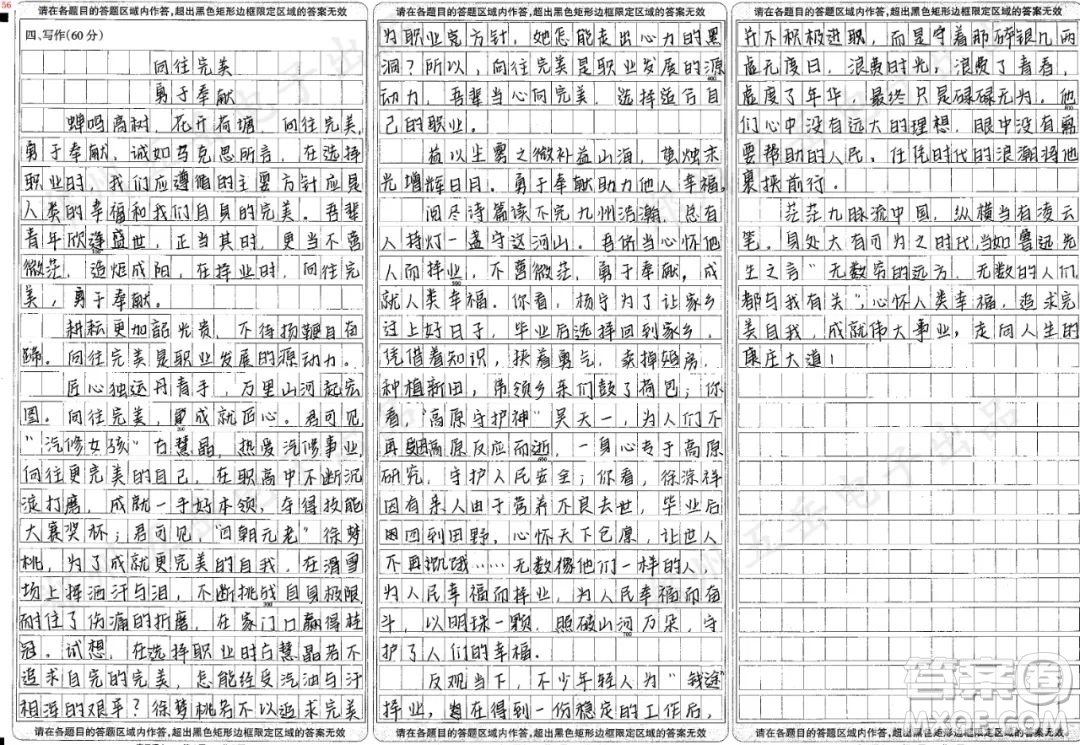 56
请在各题目的答题区域内作答,超出黑色矩形边框限定区域的答案无效
四、写作(60分)
向往完美
勇于奉献
蝉鸣高树,花开荷塘,向往完美,
勇于奉献,诚如马克思所言,在选择
职业时,我们应遵循的主要方针应是
人类的幸福和我们自身的完美。吾辈
青年欣逢盛世,正当其时,更当不啻
微茫,造炬成阳,在择业时,向往完
美,勇于奉献。
耕耘更加韶光贵,不待扬鞭自奋
蹄。向往完美是职业发展的源动力。
匠心独运丹青手,万里山河起宏
图。向往完美,成就匠心。君可见
“汽修女孩”古慧晶,热爱汽修事业,
向往更完美的自己,在职高中不断沉
淀打磨,成就一手好本领,夺得技能
大赛奖杯;君可见,“四朝元老”徐梦
桃,为了成就更完美的自我,在滑雪
场上挥洒汗与泪,不断挑战自身极限
耐住了伤痛的折磨,在家门口赢得桂
冠。试想,在选择职业时古慧晶若不
追求自完的完美,怎能经受汽油与汗
相浸的艰辛?徐梦桃若不以追求完美
请在各题目的答题区域内作答,超出黑色矩形边框限定区域的答案无效
请在各题目的答题区域内作答,超出黑色矩形边框限定区域的答案无效
为职业竞方针,她怎能走出心力的黑
洞?所以,向往完美是职业发展的源
动力,吾辈当心向完美,选择适合自
己的职业。
益以尘雾之微补益山海,萤烛末
光增辉日月。勇于奉献助力他人幸福。
阅尽诗篇读不完九州浩瀚,总有
人持灯一盏守这河山。吾侪当心怀他
人而择业,不啻微茫,勇于奉献。成
就人类幸福。你看,杨守为了让家乡
过上好日子,毕业后选择回到家乡,
凭借着知识,揣着勇气,卖掉婚房,
种植新田,带领乡亲们鼓了荷包;你
看,“高原守护神”吴天一,为人们不
再因高原反应而逝,一身心专于高原
研究,守护人民安全;你看,徐淙祥
因有亲人由于营养不良去世,毕业后
回到田野,心怀天下仓廪,让世人
不再饥饿……无数像他们一样的人,
为人民幸福而择业,为人民幸福而奋
斗,以明珠一颗,照破山河万朵,守
护了人们的幸福。
反观当下,不少年轻人为“钱途”
择业,在得到一份稳定的工作后,
请在各题目的答题区域内作答,超出黑色矩形边框限定区域的答案无效
请在各题目的答题区域内作答,超出黑色矩形边框限定区域的答案无效
并不积极进职,而是守着那碎银几两
虚无度日,浪费时光,浪费了青春,
虚度了年华,最终只是碌碌无为。他
们心中没有远大的理想,眼中没有需
要帮助的人民。任凭时代的浪潮将他
裹挟前行。
茫茫九脉流中国,纵横当有凌云
笔。身处大有可为之时代,当如鲁迅先
生之言“无数穷的远方,无数的人们
都与我有关”,心怀人类幸福,追求完
美自我,成就伟大事业,走向人生的
康庄大道!
请在各题目的答题区域内作答,超出黑色矩形边框限定区域的答案无效
答案圈
MXQE.COM